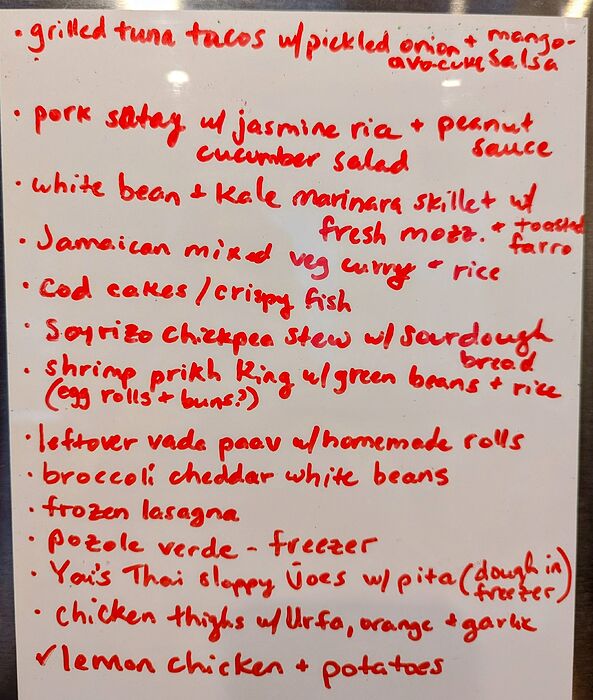 • grilled tuna tacos w/pickled onion + mango-
avo-cuke salsa
• pork satay w/ jasmine rice + peanut
sauce
cucumber salad
• white bean + kale marinara skillet w/
fresh mozz. + toasted
farro
• Jamaican mixed veg curry + rice
• cod cakes / crispy fish
• Soyrizo chickpea stew w/ sourdough
bread
• shrimp prikh king w/green beans + rice
(egg rolls + buns?)
• leftover vada paav w/homemade rolls
• broccoli cheddar white beans
• frozen lasagna
• pozole verde - freezer
• Yai's Thai sloppy Joes w/ pita (dough in
freezer)
• chicken thighs w/Urfa, orange + garlic
✓ lemon chicken + potatoes